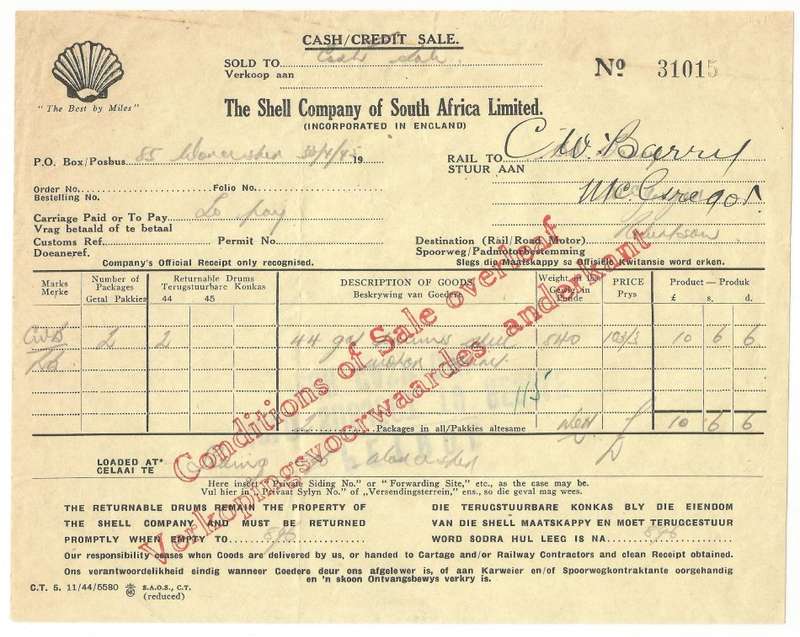 CASH/CREDIT SALE.
SOLD TO Cash Sale.
Verkoop aan
Nº 31015
"The Best by Miles"
The Shell Company of South Africa Limited.
(INCORPORATED IN ENGLAND)
P.O. Box/Posbus 85 Worcester 19
RAIL TO C.W. Barry
STUUR AAN
McGregor
Order No. Folio No.
Bestelling No.
Carriage Paid or To Pay To pay
Vrag betaald of te betaal
Robertson
Customs Ref. Permit No.
Doeaneref.
Destination (Rail/Road Motor)
Spoorweg/Padmotorbestemming
Company's Official Receipt only recognised.
Slegs die Maatskappy se Offisiële Kwitansie word erken.
Marks Merke
Number of Packages Getal Pakkies
Returnable Drums Terugstuurbare Konkas 44 45
DESCRIPTION OF GOODS Beskrywing van Goedere
Weight in Lbs. Gewig in Ponde
PRICE Prys
Product — Produk £ s. d.
CWB 2 2 44 gal drums 540 103/3 10 6 6
115
Packages in all/Pakkies altesame £ 10 6 6
LOADED AT* Siding Worcester
GELAAI TE
Here insert "Private Siding No." or "Forwarding Site," etc., as the case may be.
Vul hier in "Privaat Sylyn No." of "Versendingsterrein," ens., so die geval mag wees.
THE RETURNABLE DRUMS REMAIN THE PROPERTY OF
THE SHELL COMPANY AND MUST BE RETURNED
PROMPTLY WHEN EMPTY TO
DIE TERUGSTUURBARE KONKAS BLY DIE EIENDOM
VAN DIE SHELL MAATSKAPPY EN MOET TERUGGESTUUR
WORD SODRA HUL LEEG IS NA
Our responsibility ceases when Goods are delivered by us, or handed to Cartage and/or Railway Contractors and clean Receipt obtained.
Ons verantwoordelikheid eindig wanneer Goedere deur ons afgelewer is, of aan Karweier en/of Spoorwegkontraktante oorgehandig
en 'n skoon Ontvangsbewys verkry is.
C.T. 5. 11/44/5580 S.A.O.S., C.T.
(reduced)
Conditions of Sale overleaf
Verkopingsvoorwaardes anderkant